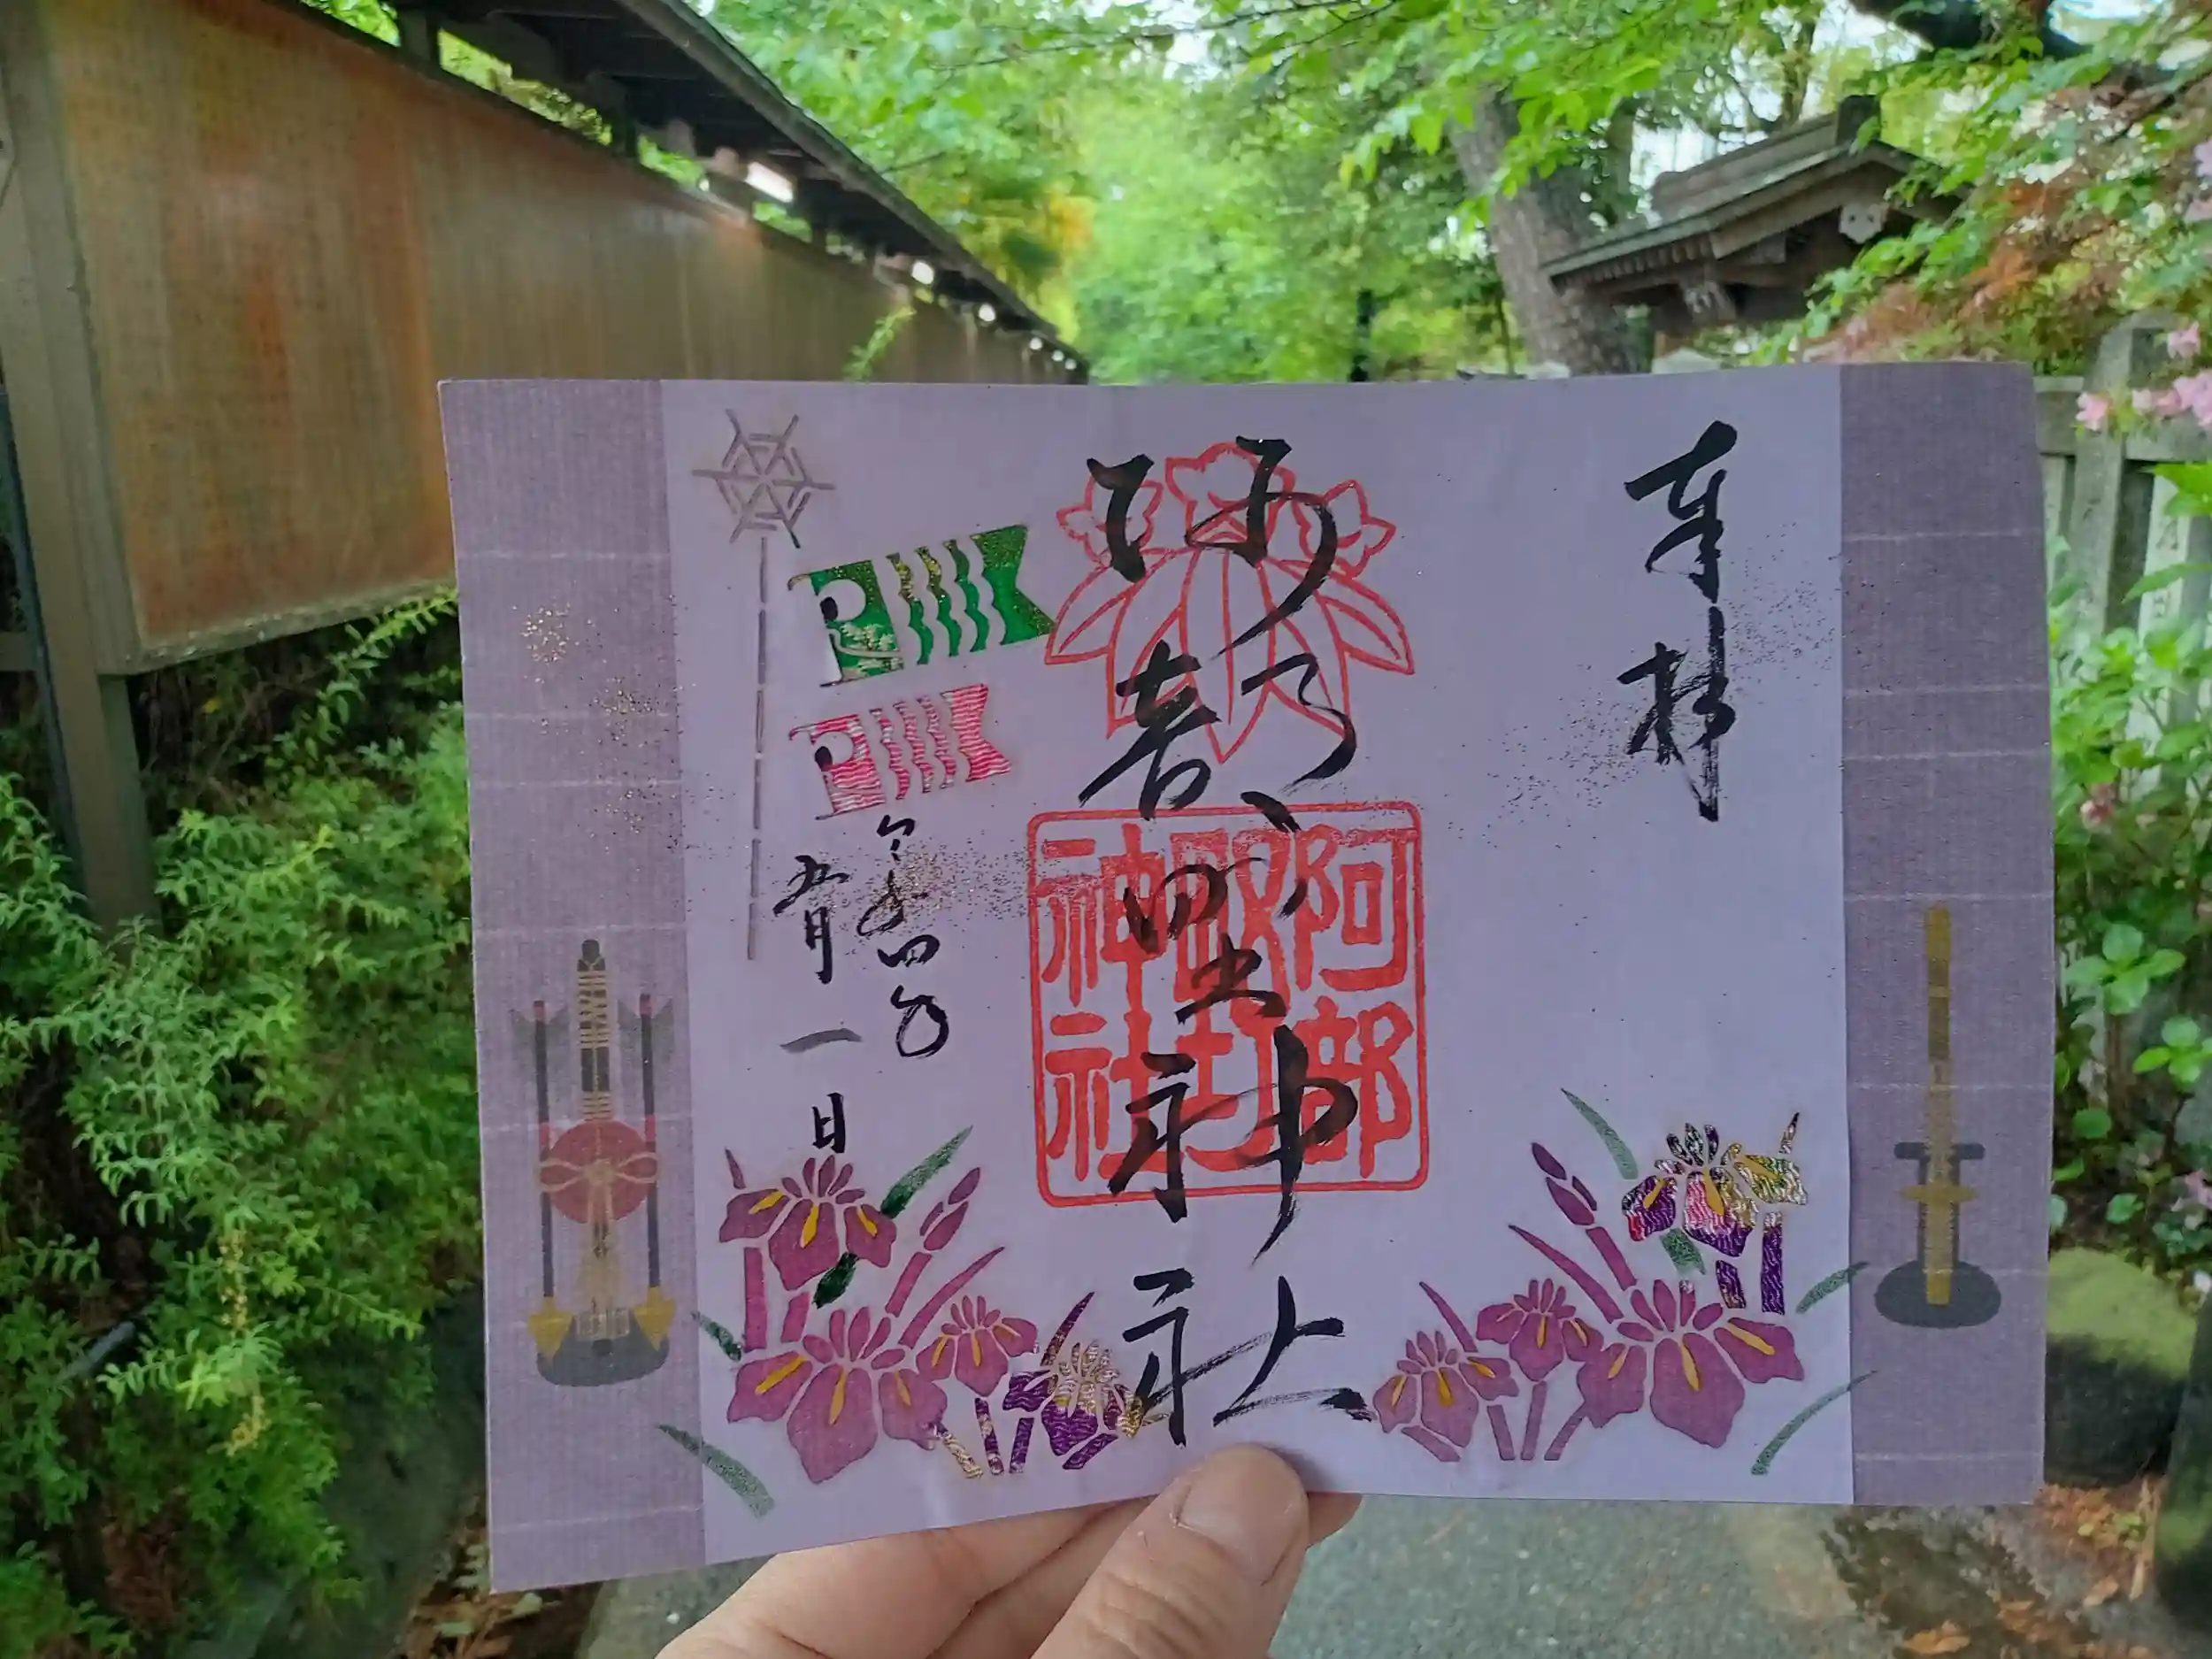 奉拝
阿部野神社
阿部野神社
令和四年
五月一日